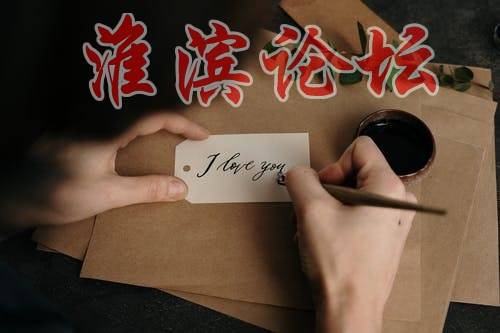 淮滨论坛
I love you